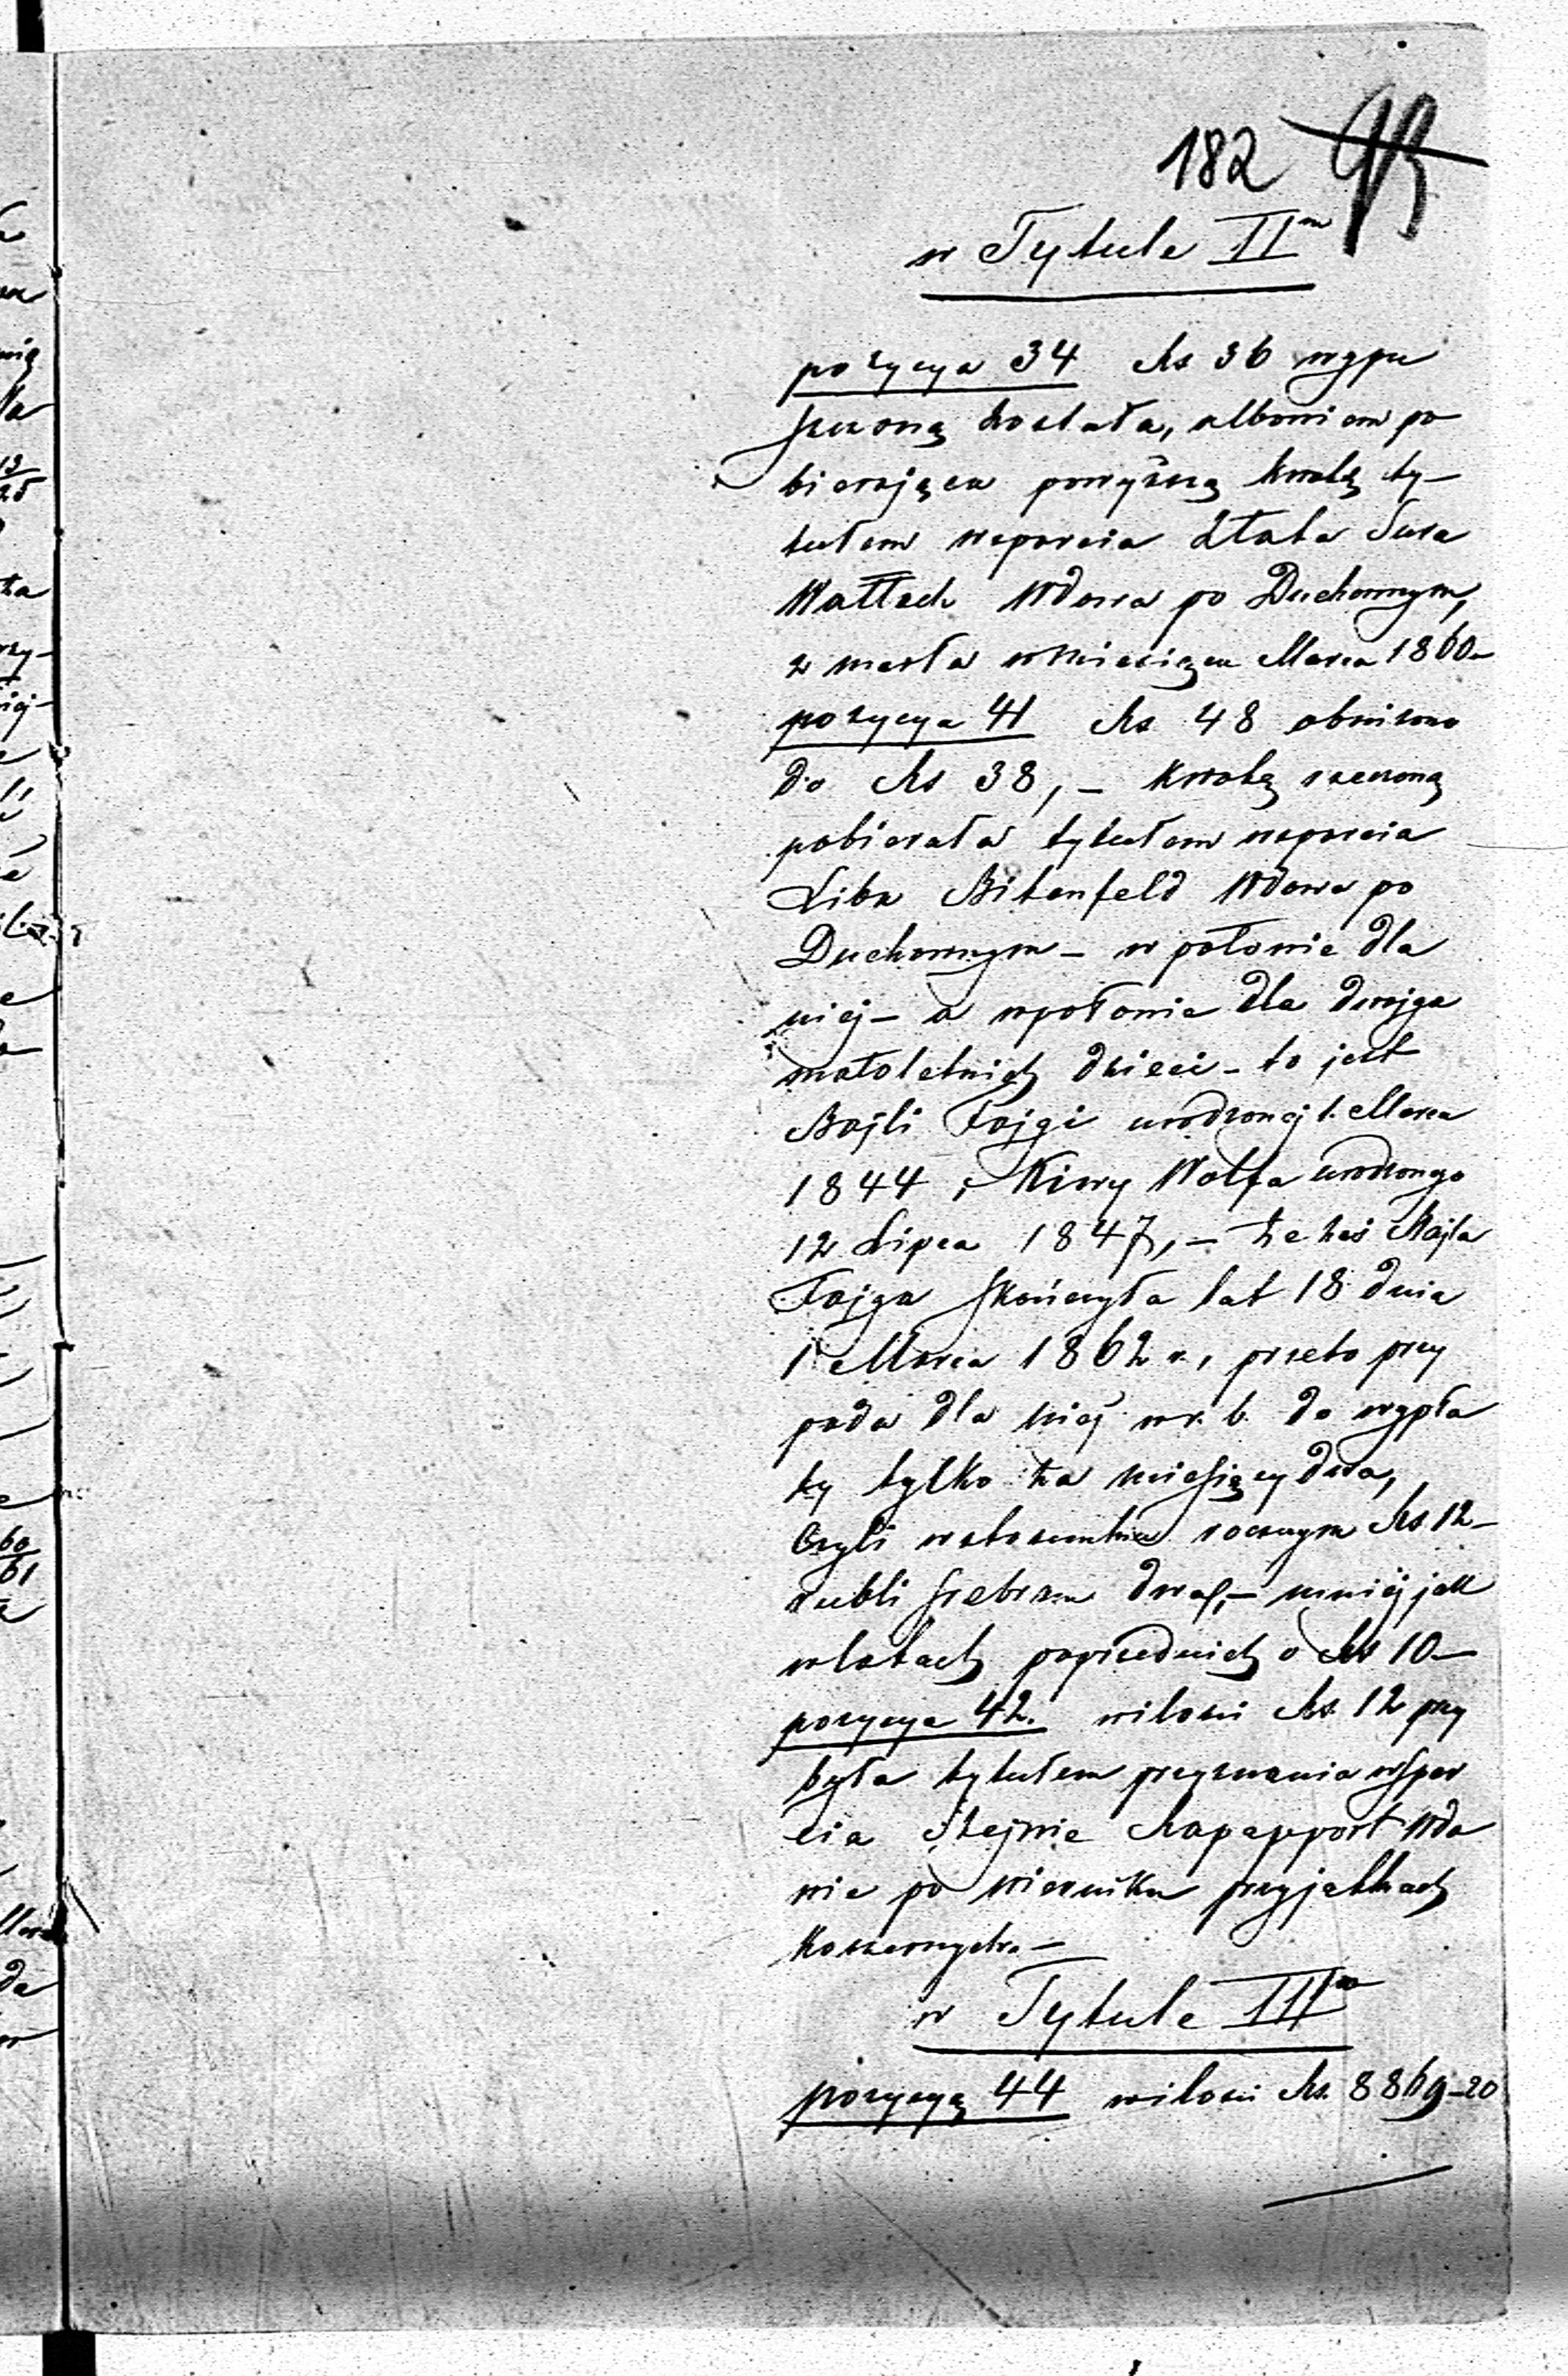 182 93
w Tytule II<sup>m</sup>
pozycya 34 Rs 36 wypu
szczoną została, albowiem po
bierająca powyższą kwotę ty-
tułem wsparcia Złata Sura
Wałłach Wdowa po Duchownym,
zmarła w Miesiącu Marca 1860-
pozycya 41 Rs 48 obniżono
do Rs 38, - kwotę rzeczoną
pobierała tytułem wsparcia
Liba Bitenfeld Wdowa po
Duchownym - w połowie dla
niej - a wpołowie dla dwojga
małoletnich dzieci - to jest
Rajli Fajgi urodzonej 1. Marca
1844 i Kiwy Wolfa urodzonego
12 Lipca 1847, - że zaś Rajla
Fajga skończyła lat 18 dnia
1 Marca 1862 r., przeto przy
pada dla niej w r. b. do wypła
ty tylko za miesięcy dwa,
czyli w stosunku rocznym Rs 12-
rubli srebrem dwa, - mniej jak
w latach poprzednich o Rs 10-
pozycya 42. wilości Rs. 12 przy
była tytułem przyznania wspar
cia Szejnie Rapapport Wdo
wie po wierniku przy jatkach
Koszernych. -
w Tytule III<sup>m</sup>
pozycyą 44 wilości Rs. 8869-20